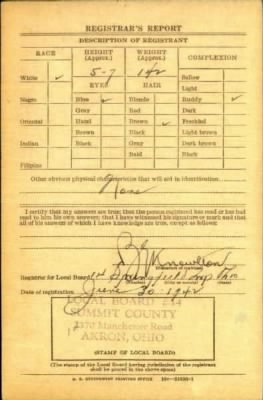 REGISTRAR'S REPORT
DESCRIPTION OF REGISTRANT
RACE HEIGHT (Approx.) WEIGHT (Approx.) COMPLEXION
White ✓ 5-7 142 Sallow
EYES HAIR Light
Negro Blue ✓ Blonde Ruddy ✓
Gray Red Dark
Oriental Hazel Brown ✓ Freckled
Brown Black Light brown
Indian Black Gray Dark brown
Bald Black
Filipino
Other obvious physical characteristics that will aid in identification.
None
I certify that my answers are true; that the person registered has read or has had
read to him his own answers; that I have witnessed his signature or mark and that
all of his answers of which I have knowledge are true, except as follows:
Knowlton
Registrar for Local Board Springfield Twp Ohio
Date of registration June 30 - 1942
LOCAL BOARD
SUMMIT COUNTY
2370 Manchester Road
AKRON, OHIO
(STAMP OF LOCAL BOARD)
(The stamp of the Local Board having jurisdiction of the registrant
shall be placed in the above space)
U. S. GOVERNMENT PRINTING OFFICE